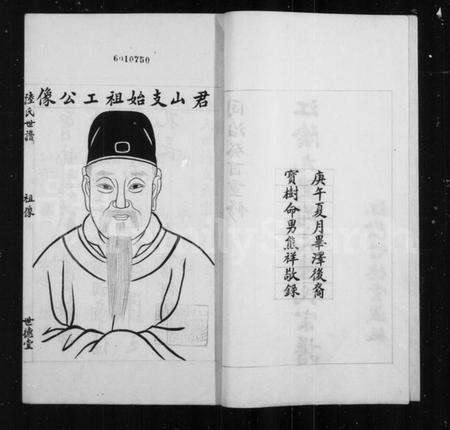 6010750
庚午夏月畢澤後裔
寶樹命男熊祥敬錄
君山支始祖工公像
陸氏世譜
祖像
世德堂